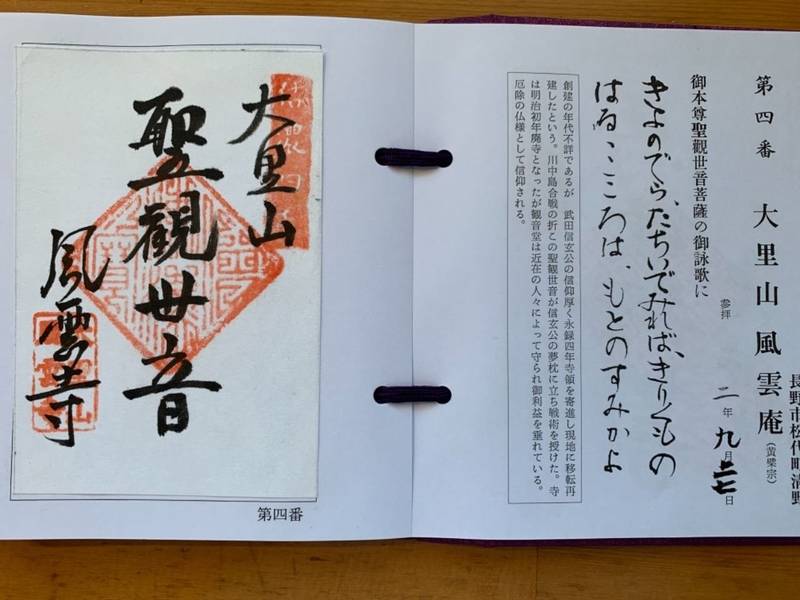 長野市松代町清野
第四番 大里山風雲庵(黄檗宗)
参拝 二年九月 日
御本尊聖觀世音菩薩の御詠歌に
きよのでら、たちいでみれば、きりくもの
はるゝこころは、もとのすみかよ
創建の年代不詳であるが 武田信玄公の信仰厚く永録四年寺領を寄進し現地に移転再
建したという。川中島合戦の折この聖観世音が信玄公の夢枕に立ち戦術を授けた。寺
は明治初年廃寺となったが観音堂は近在の人々によって守られ御利益を垂れている。
厄除の仏様として信仰される。
大里山
聖觀世音
風雲寺
第四番